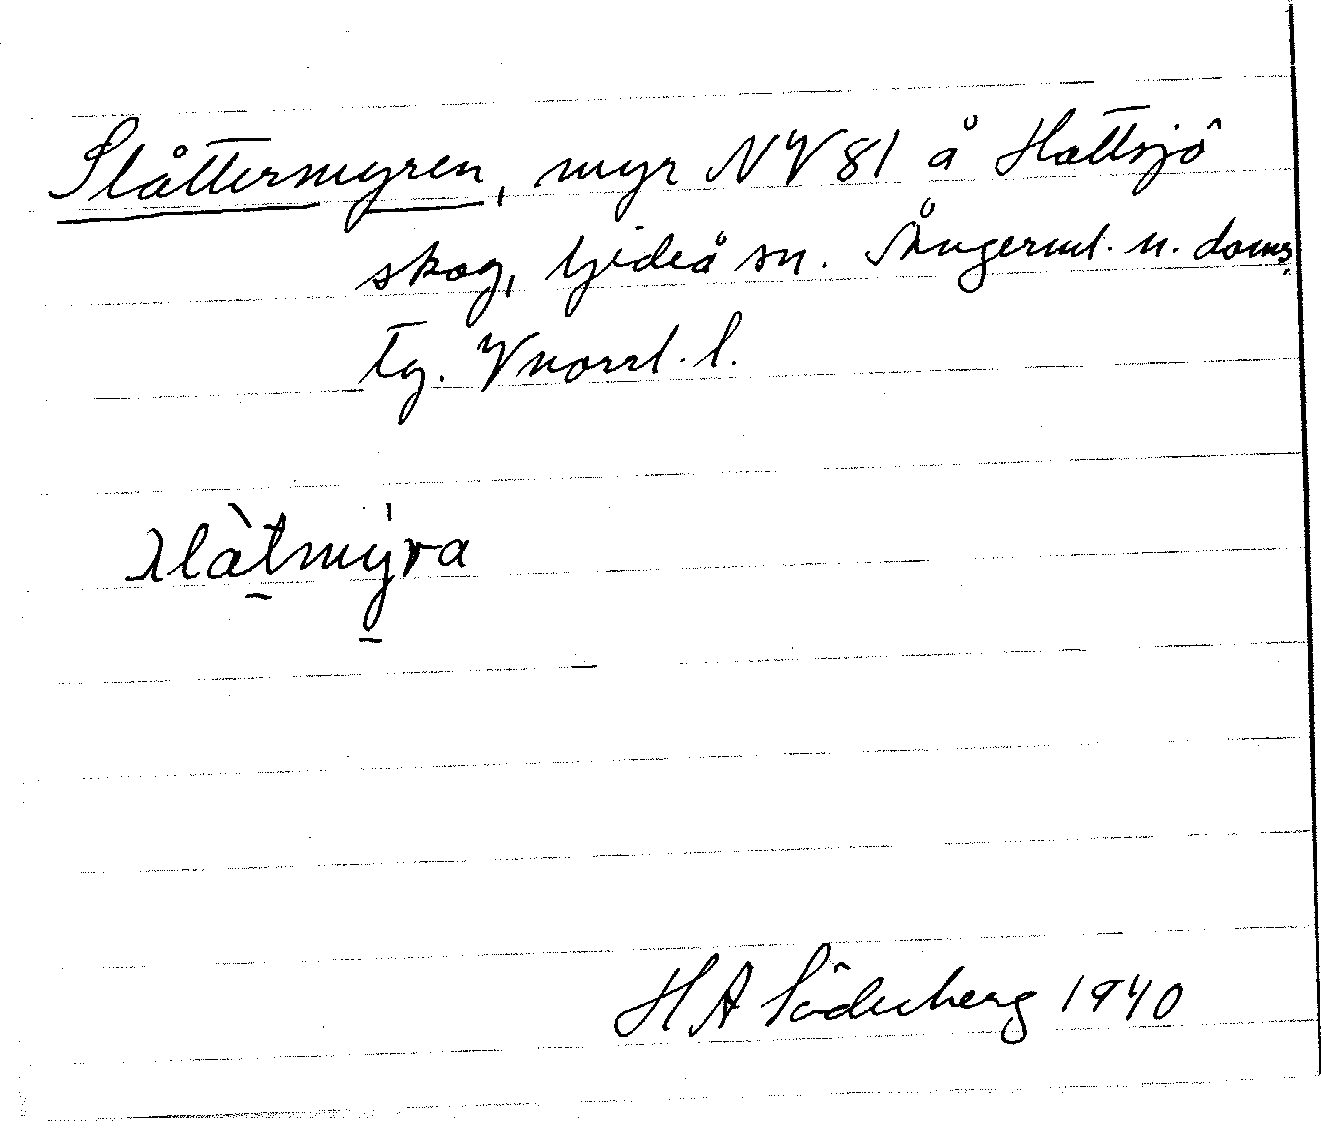 Slåttermyren, myr NV 81 å Hattsjö
skog, Gideå sn. Ångerml. n. doms.
tg. Vnorrl. l.
slàtmýra
H A Söderberg 1940